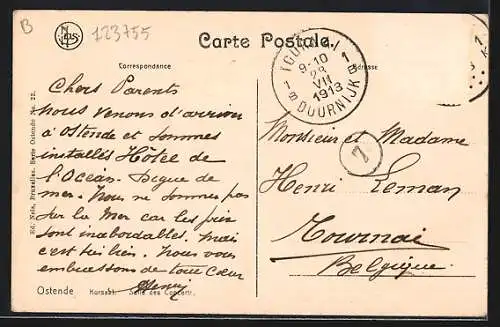 B
123755
Carte Postale.
Correspondance
Adresse
TOURNAI 1
9-10
28
VII
1913
1B DOORNIJK 1B
Chers Parents
nous venons d'arriver
à Ostende et sommes
installés Hôtel de
l'Océan. Digue de
mer. Nous ne sommes pas
sur la Mer car les prix
sont inabordables. Mais
c'est très bien. Nous vous
embrassons de tout cœur
Henry
Monsieur et Madame
7
Henri Leman
Tournai
Belgique
Ed. Nels, Bruxelles. Serie Ostende No. 22.
Ostende Kursaal. Salle des Concerts.